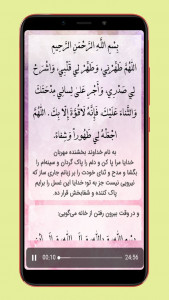 بِسْمِ اللَّهِ الرَّحْمَنِ الرَّحِيمِ
اللَّهُمَّ طَهِّرْنِي، وَطَهِّرْ لِي قَلْبِي، وَاشْرَحْ
لِي صَدْرِي، وَأَجْرِ عَلَى لِسَانِي مِدْحَتَكَ
وَالثَّنَاءَ عَلَيْكَ، فَإِنَّهُ لَا قُوَّةَ إِلَّا بِكَ. اللَّهُمَّ
اجْعَلْهُ لِي طَهُوراً وَشِفَاءً.
به نام خداوند بخشنده مهربان
خدایا مرا پا کن و دلم را پاک گردان و سینه‌ام را
بگشا و مدح و ثنای خودت را بر زبانم جاری ساز که
نیرویی نیست جز به تو؛ خدایا این غسل را برایم
پاک کننده و شفابخش قرار ده.
و در وقت بیرون رفتن از خانه می‌گویی:
00:10
24:56